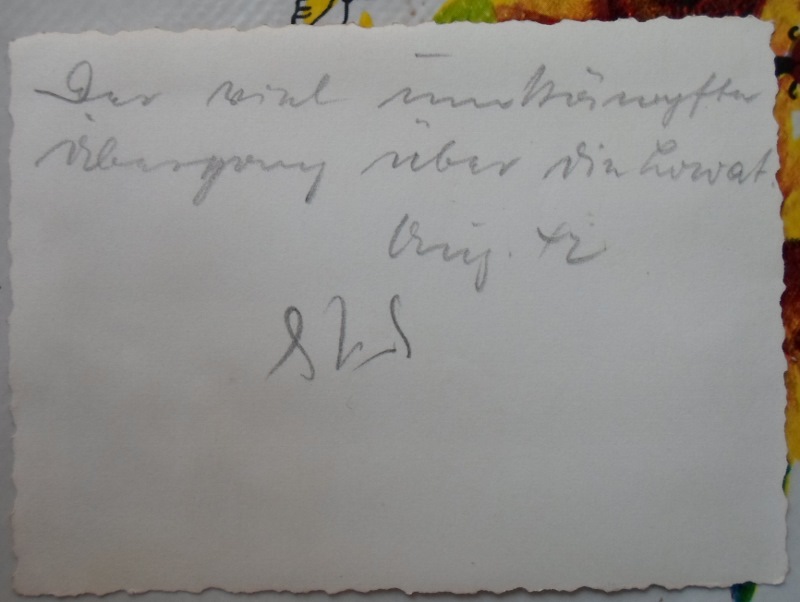 Der viel umkämpfte
Übergang über die Lowat.
Aug. 42